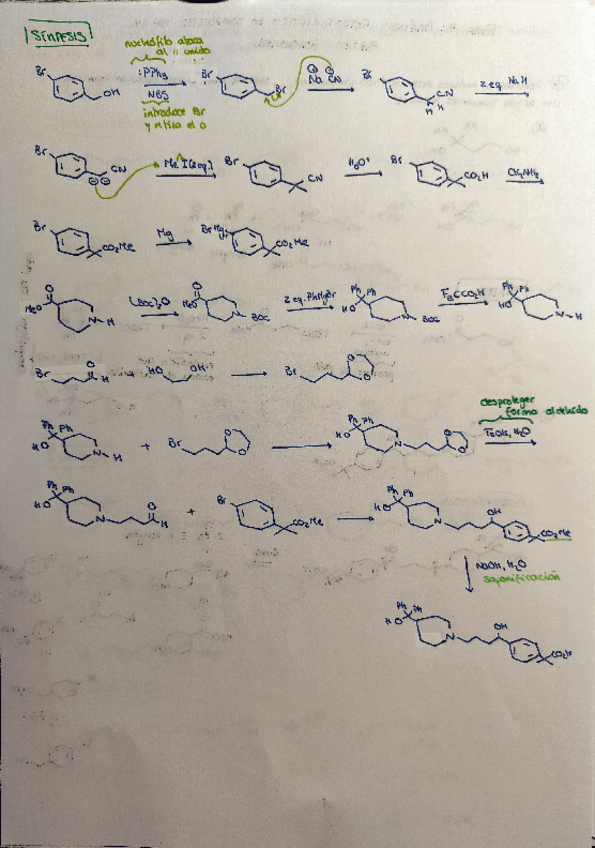 SÍNTESIS
nucleófilo ataca
al unido
Br OH :PPh3 NBS Br Br Na CN Br CN H H 2 eq NaH
introduce Br
y retira el O
Br CN MeI (2 eq.) Br CN H3O+ Br CO2H CH2N2
Br CO2Me Mg BrMg CO2Me
MeO O N-H (Boc)2O MeO O N BOC 2 eq. PhMgBr Ph Ph HO N BOC F3CCO2H Ph Ph HO N-H
Br O H + HO OH Br O O
Ph Ph HO N-H + Br O O Ph Ph HO N O O
desproteger
forma aldehído
H2O
Ph Ph HO N O H + Br CO2Me Ph Ph HO N OH CO2Me
NaOH, H2O
saponificación
Ph Ph HO N OH CO2H